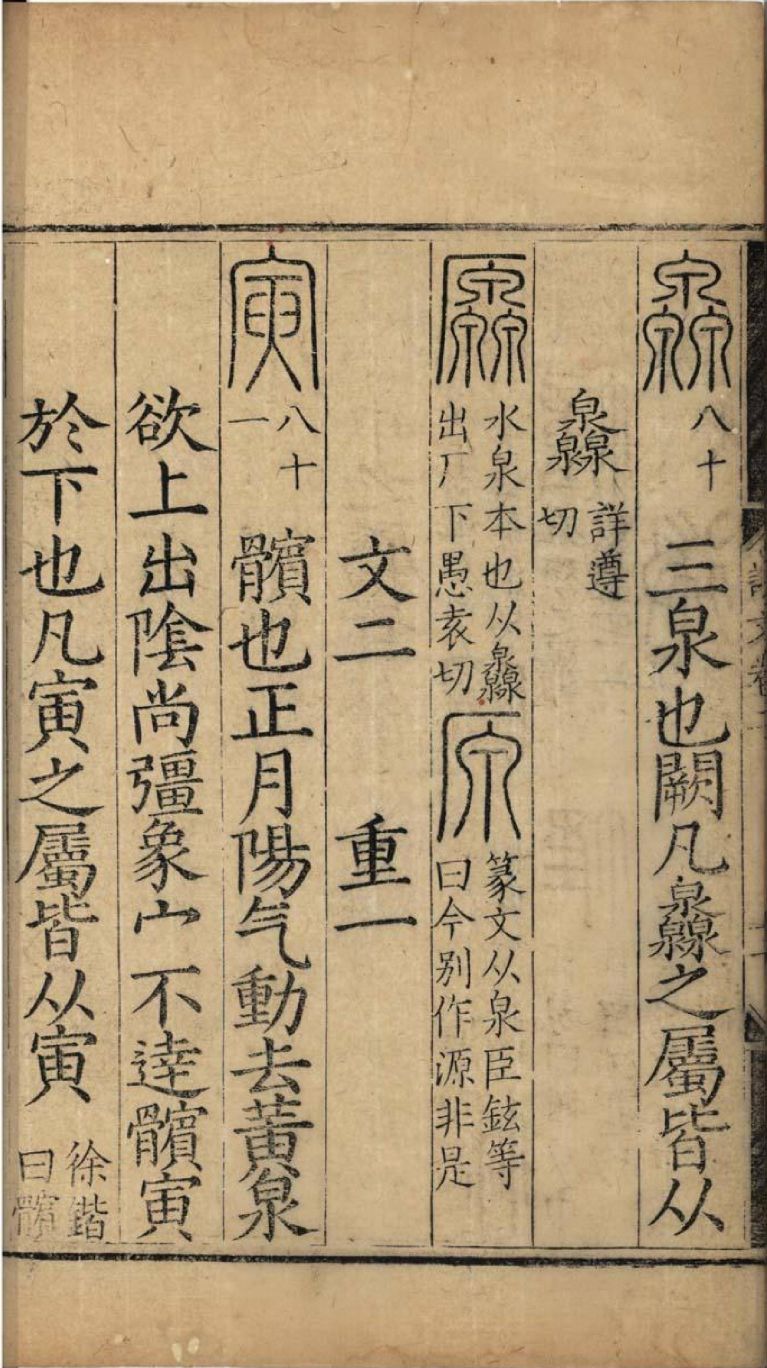 灥 八十 三泉也闕凡灥之屬皆从
灥 詳遵切
厵 水泉本也从灥出厂下愚袁切 原 篆文从泉臣鉉等曰今别作源非是
文二 重一
寅 八十一 髕也正月陽气動去黃泉
欲上出陰尚彊象宀不逹髕寅
於下也凡寅之屬皆从寅 徐鍇曰髕